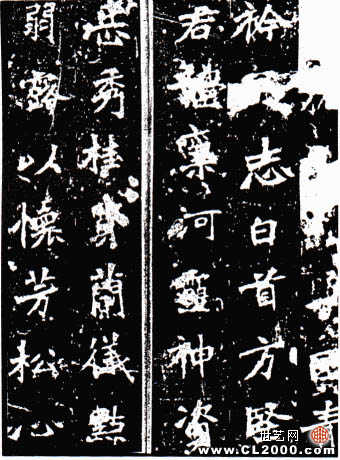 衿志白首方堅
君體稟河靈神資
岳秀桂質蘭儀點
弱露以懷芳松心
世艺网
WWW.CL2000.COM